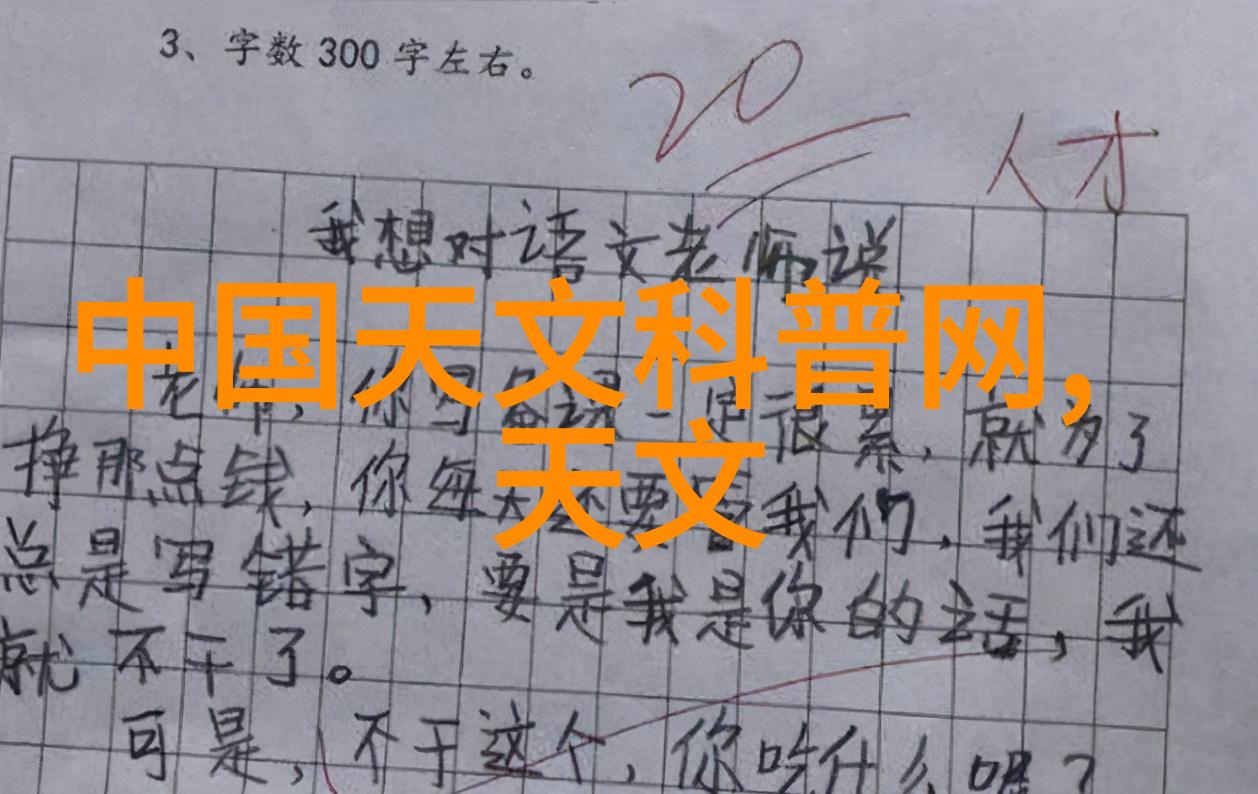 3、字数300字左右。
20
人才
我想对语文老师说
中国天文科普网,
天文
老师,你写备课一定很累,就为了
挣那点钱,你每天还要管我们,我们还
总是写错字,要是我是你的话,我
就不干了。
可是,不干这个,你吃什么呢?